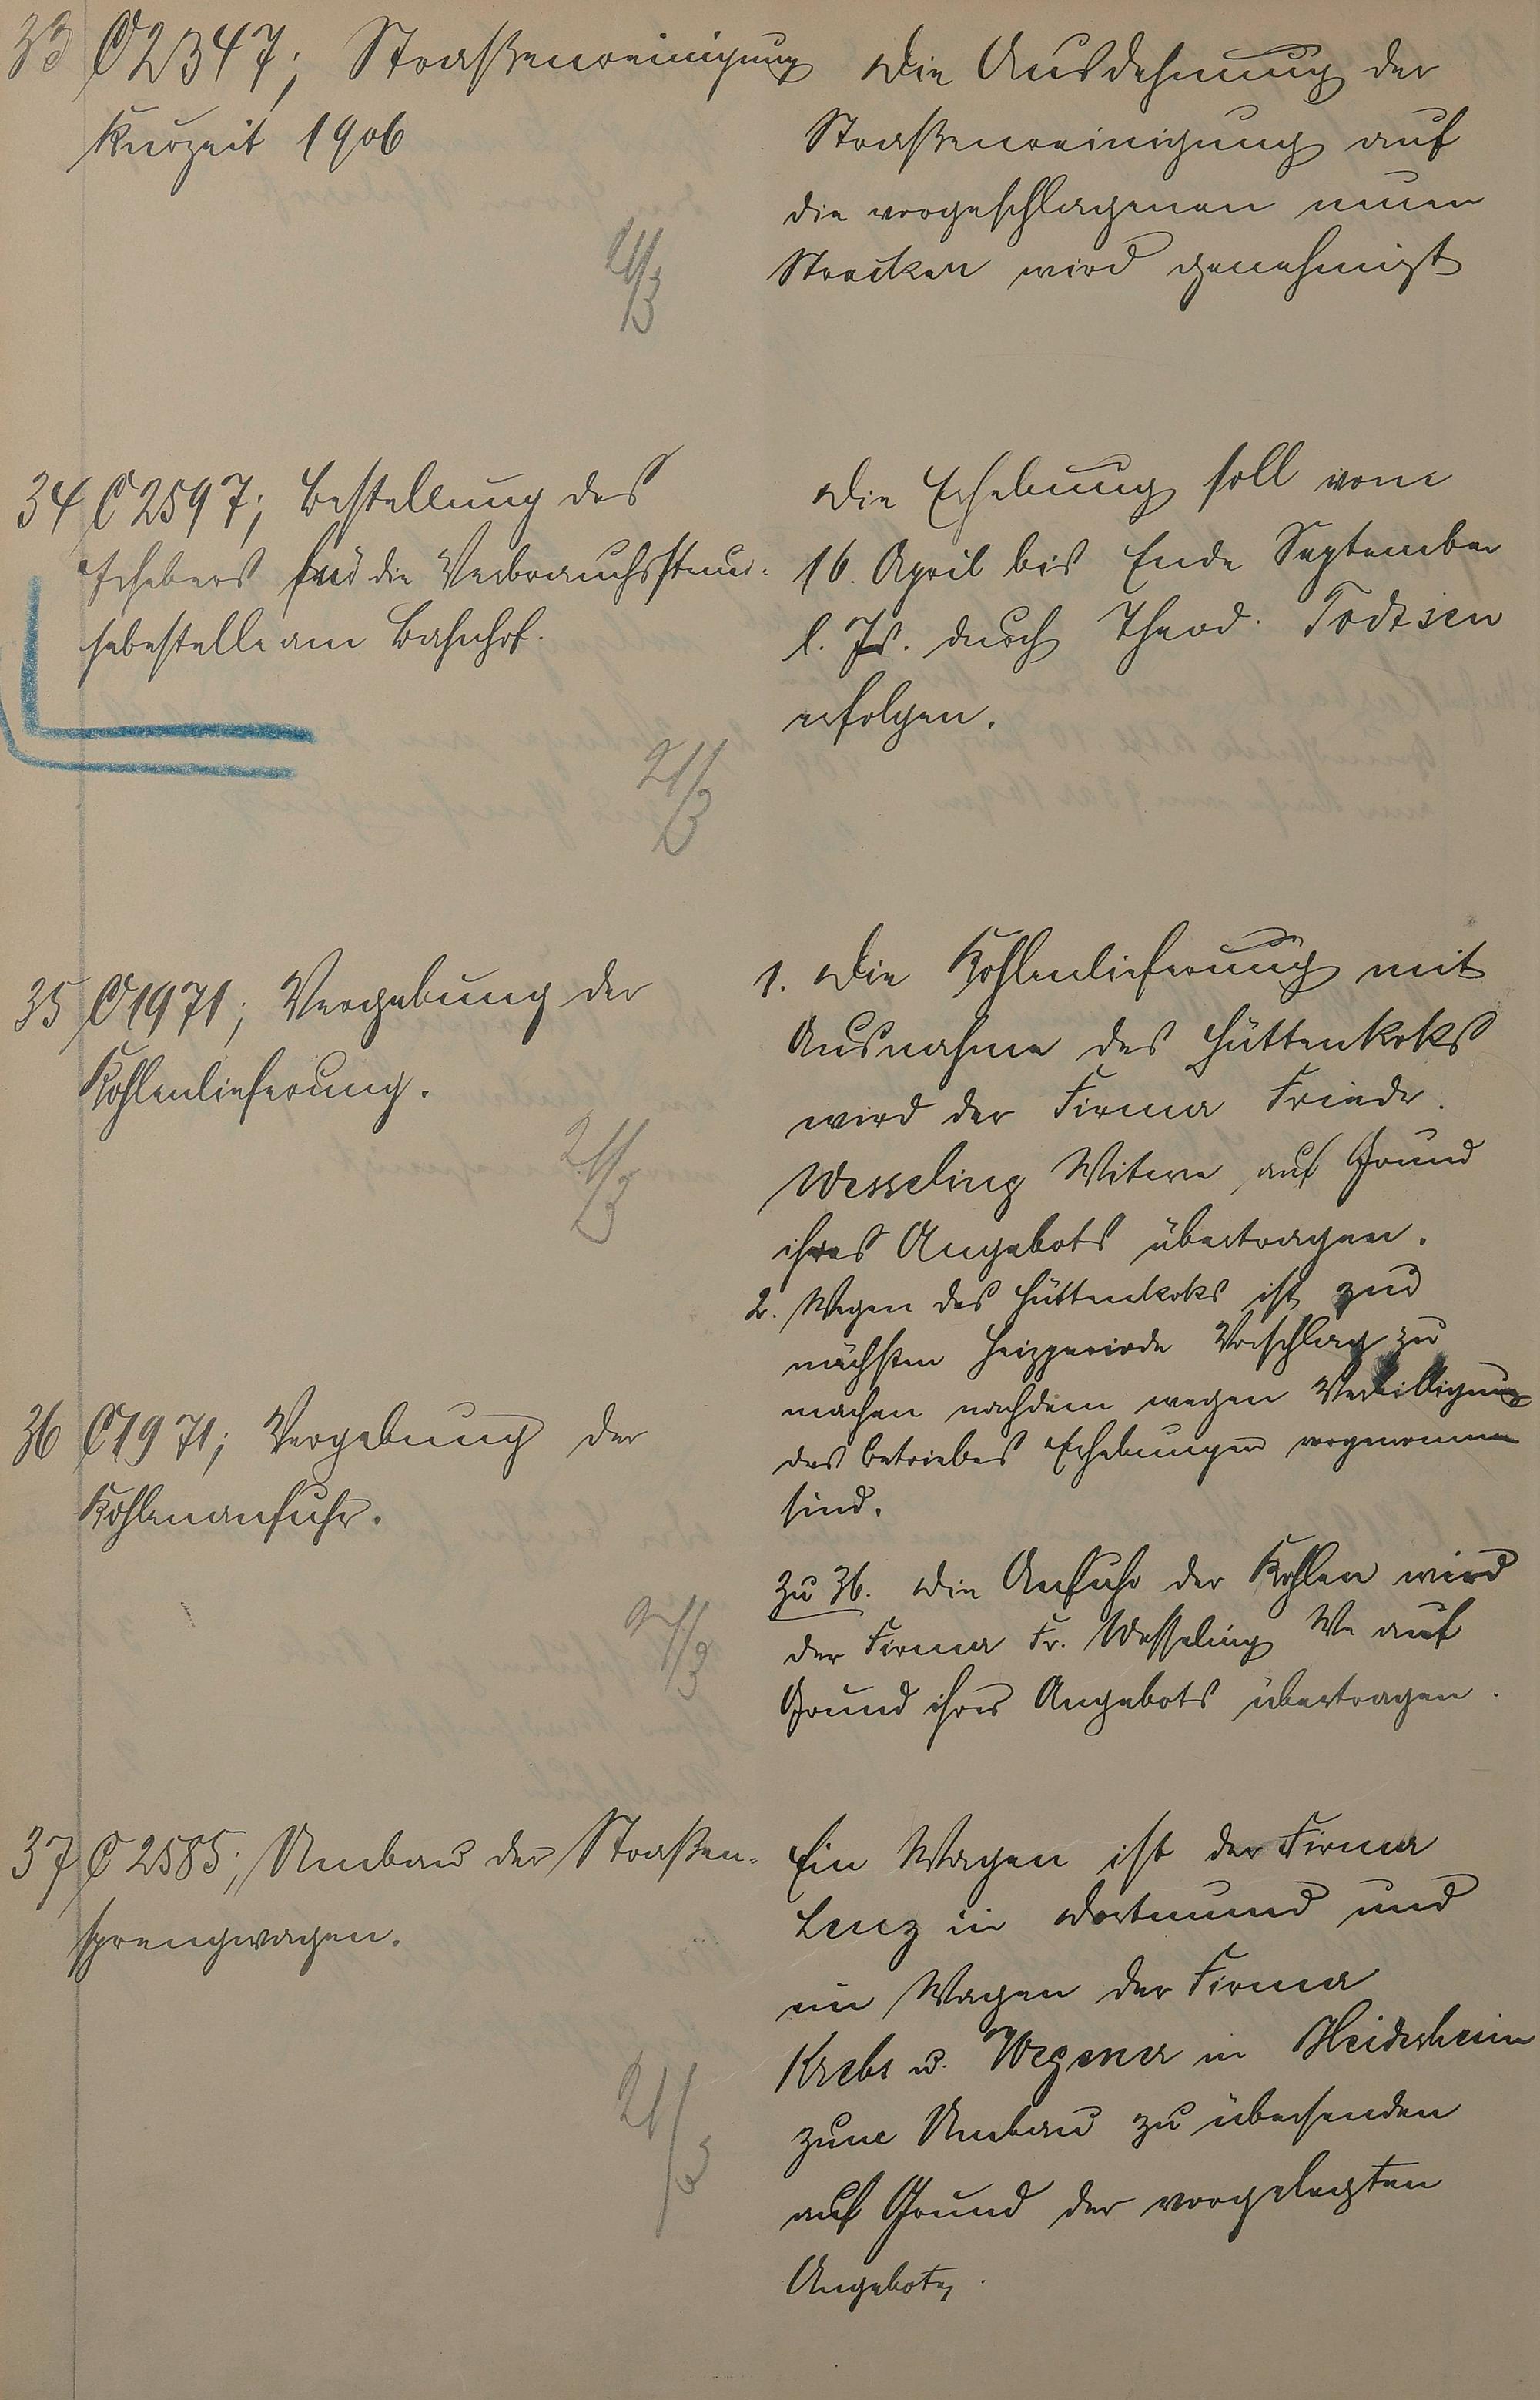 33 C 2347; Straßenreinigung
Kurzeit 1906
21/3
Die Ausdehnung der
Straßenreinigung auf
die vorgeschlagenen neuen
Strecken wird genehmigt
34 C 2597; Bestellung des
Erhebers für die Verbrauchssteuer-
hebestelle am Bahnhof.
21/3
Die Erhebung soll vom
16. April bis Ende September
l. Js. durch Theod. Todtsen
erfolgen.
35 C 1971; Vergebung der
Kohlenlieferung.
21/3
1. Die Kohlenlieferung mit
Ausnahme des Hüttenkoks
wird der Firma Friedr.
Wesseling Witwe auf Grund
ihres Angebots übertragen.
2. Wegen des Hüttenkoks ist zur
nächsten Heizperiode Vorschlag zu
machen nachdem wegen Verbilligung
des Betriebes Erhebungen vorgenommen
sind.
36 C 1971; Vergebung der
Kohlenanfuhr.
21/3
Zu 36. Die Anfuhr der Kohlen wird
der Firma Fr. Wesseling We auf
Grund ihres Angebots übertragen.
37 C 2585; Umbau der Straßen-
sprengwagen.
21/3
Ein Wagen ist der Firma
Lenz in Dortmund und
ein Wagen der Firma
Krebs u. Wegener in Heidesheim
zum Umbau zu übersenden
auf Grund der vorgelegten
Angebote.